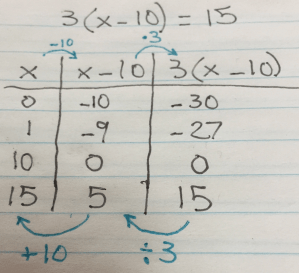 3(x-10) = 15
-10 ·3
x x-10 3(x-10)
0 -10 -30
1 -9 -27
10 0 0
15 5 15
+10 ÷3